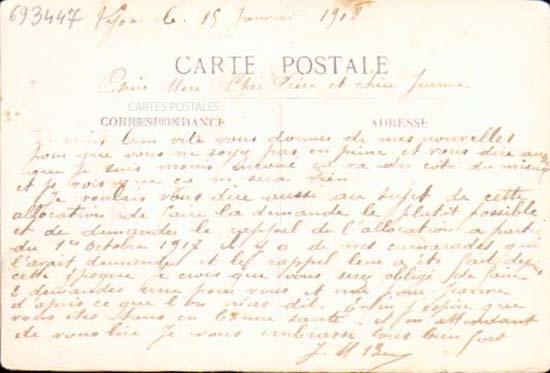 693447 Lyon le 15 Janvier 1918
CARTE POSTALE
Chère Mère Cher Père et chère Jeanne
CARTES POSTALES
CORRESPONDANCE ADRESSE
Je viens bien vite vous donner de mes nouvelles
pour que vous ne soyez pas en peine et vous dire aussi
que je suis moins ça va du côté du mieux
et je crois que ce ne sera rien
Je voulais vous dire aussi au sujet de cette
allocation de faire la demande le plutôt possible
et de demander le rappel de l'allocation a partir
du 1er Octobre 1917 il y a de mes camarades qui
l'avait demander et le rappel leur a été fait depuis
cette époque je crois que vous serez obligé de faire
2 demandes une pour vous et une pour Jeanne
d'après ce que l'on m'as dit. Enfin j'espère que
vous êtes tous en bonne santé et en attendant
de vous lire Je vous embrasse tous bien fort